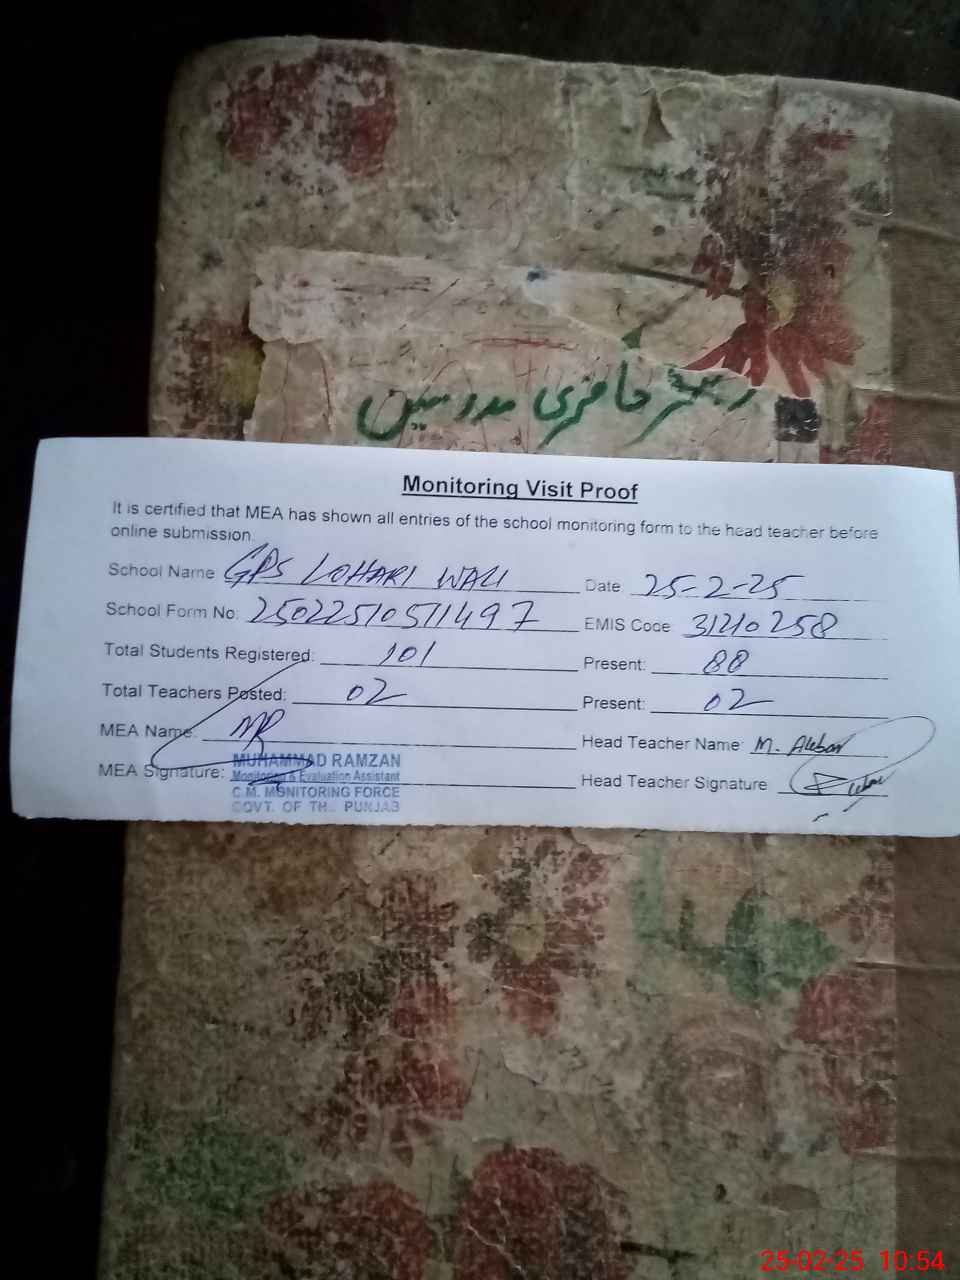 رجسٹر حاضری مدرسین
Monitoring Visit Proof
It is certified that MEA has shown all entries of the school monitoring form to the head teacher before
online submission.
School Name GPS LOHARI WALI Date 25-2-25
School Form No: 25022510511497 EMIS Code 31210258
Total Students Registered: 101 Present: 88
Total Teachers Posted: 02 Present: 02
MEA Name: MR Head Teacher Name M. Akbar
MUHAMMAD RAMZAN
MEA Signature: Monitoring & Evaluation Assistant Head Teacher Signature
C.M. MONITORING FORCE
GOVT. OF THE PUNJAB
25-02-25 10:54